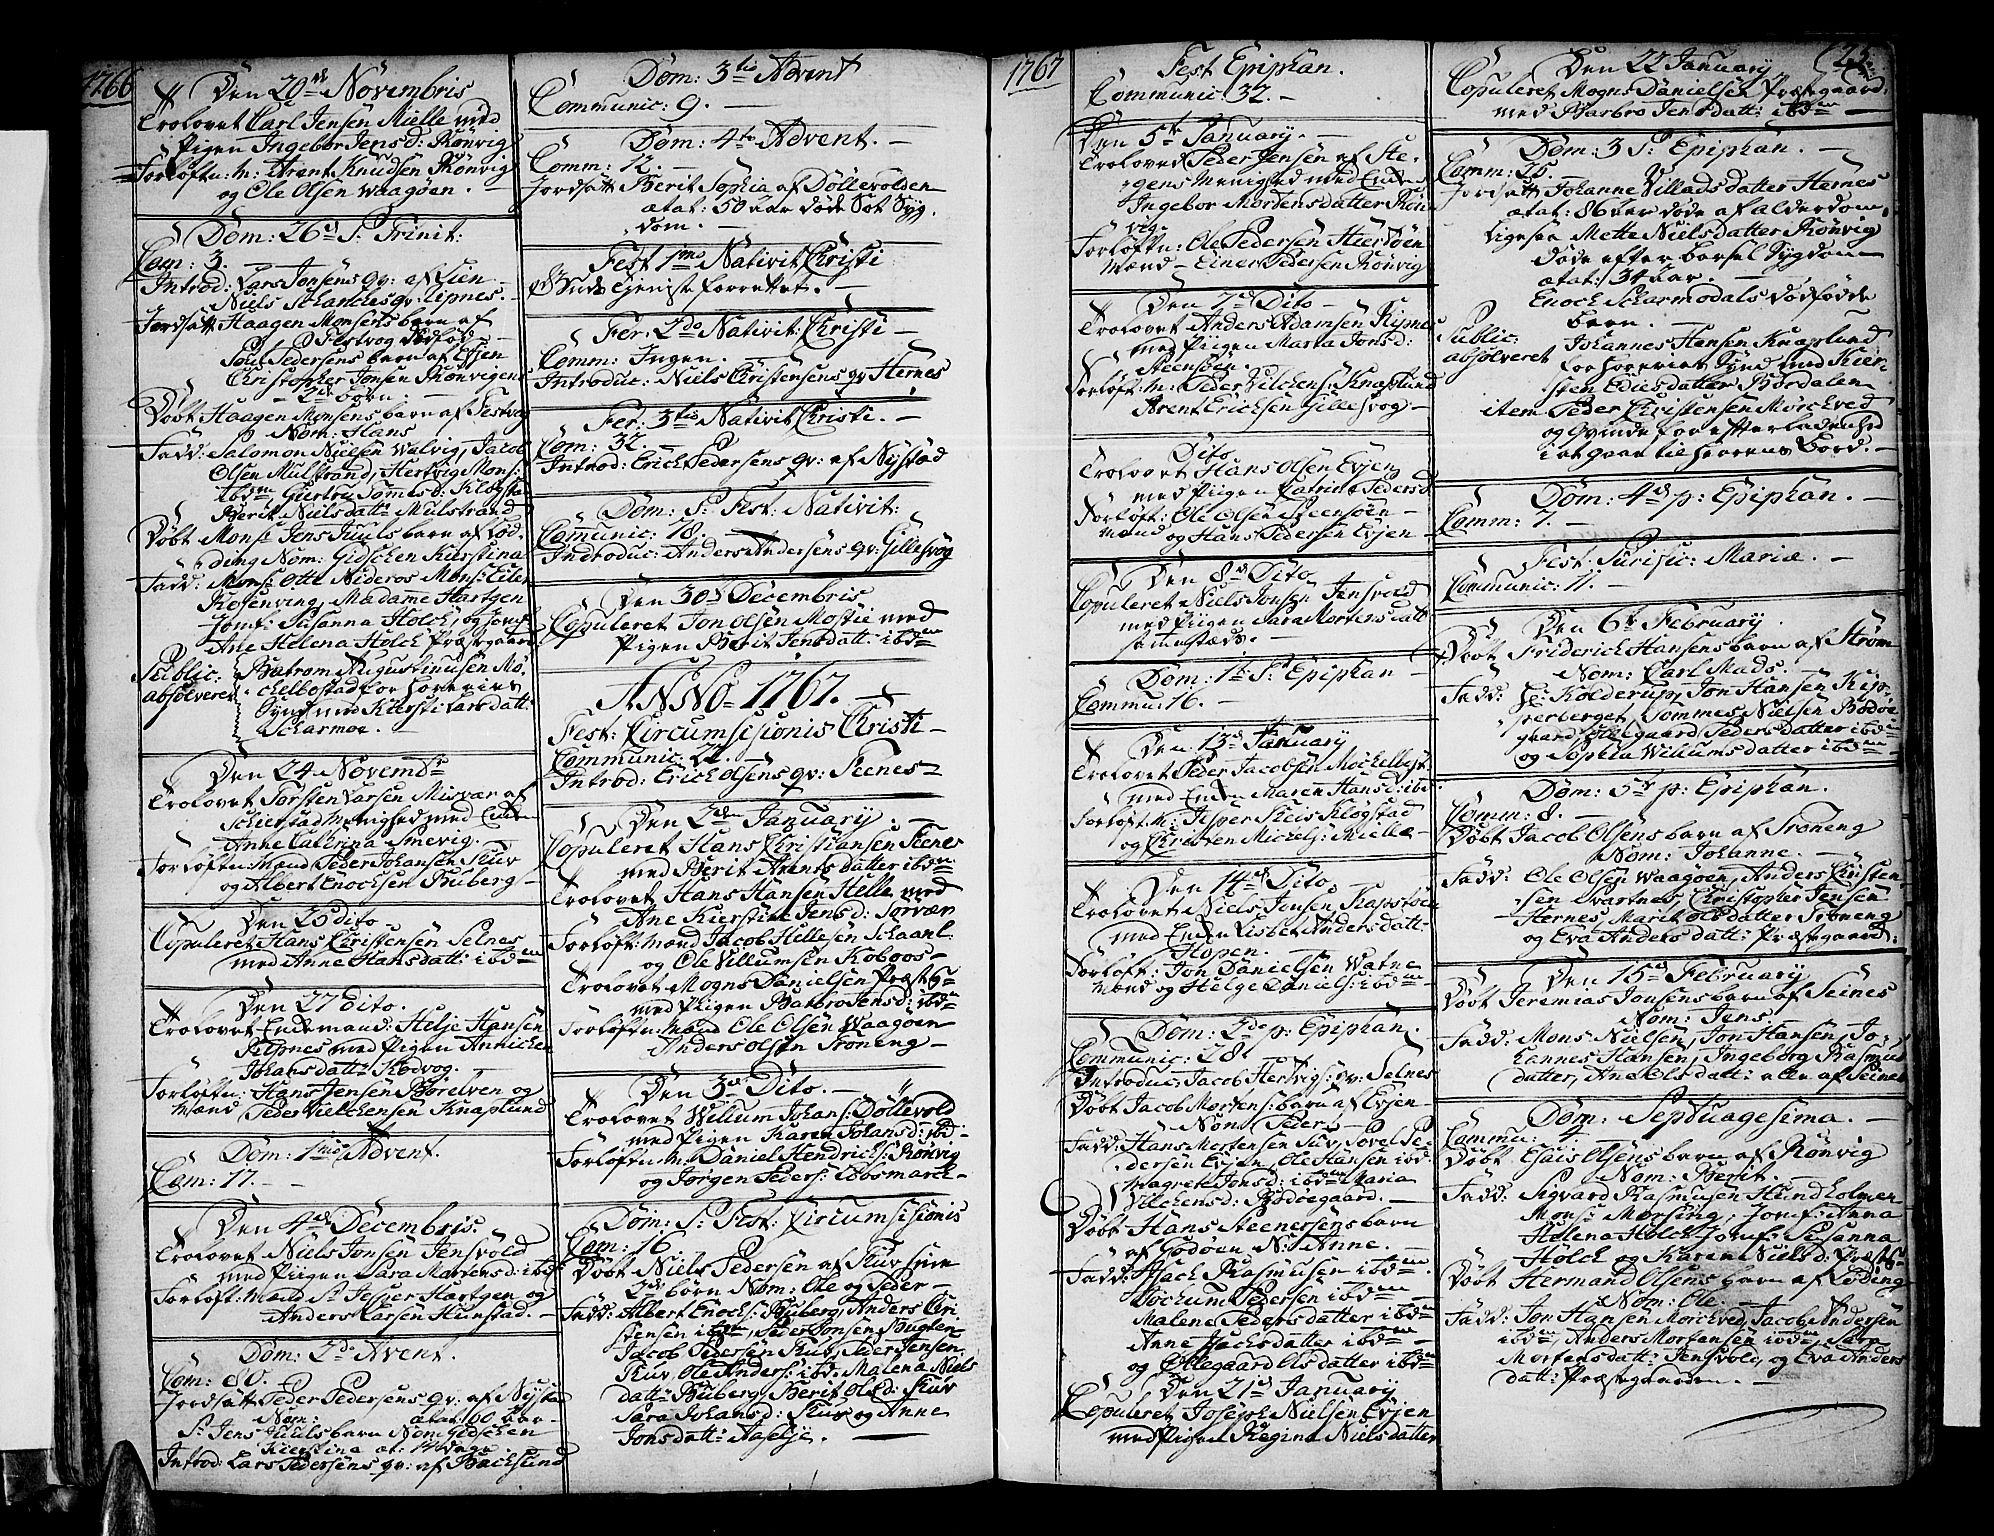 1766
Den 20de Növembris
Trolovet Carl Jensen Mielle med
Pigen Ingebor Jensd: Rönvig
Forløftn: M: Arent Knudsen Rönvig
og Ole Olsen Waagøen.
Dom: 26de P: Trinit:
Com: 3.
Introd: Lars Jonsens qv: af
Niels Schanches qv: Lipnes.
Jordsatt Haagen Monsens barn af
Festvog dødfød
Poul Pedersens barn af Evjen
Christopher Jonsen Rönvigens
2de børn.
Døbt Haagen Monsens barn af Festvog
Nom: Hans
Fadd: Salomon Nielsen Walvig, Jacob
Olsen Mulstrand, Hertvig Mons:
ibdm, Giertru Tomesd: Klogstad
Berit Nielsdatt: Mulstrand
Døbt Monsr Jens Juuls barn af Lod-
ding Nom: Gidschen Kierstina
Fadd: Mons: Otte Nideros Mons: Eiler
Rosenving, Madame Hartgen
Jomf: Susanna Holck, og Jomf:
Ane Helena Holck Præstegaard
Public: absolveret
Batrom Augustinusen Mö-
chelbostad for horeriets
Synd med Kiersti Larsdatt:
Scharmoe.
Den 24 Növembr
Trolovet Torsten Larsen Misvær af
Schierstad Menighed med Enken
Anne Cathrina Smevig.
Forløftn: Mænd Peder Johansen Skuv
og Albert Enochsen Buberg
Den 26 dito
Copuleret Hans Christensen Selnes
med Anne Hansdatt: ibdm
Den 27 Dito.
Trolovet Enkemand: Helje Hansen
Pelpnes med Pigen Annichen
Johansdatt: Kodvog.
Forløftn: Hans Jensen Börelven og
Mænd Peder Vielchensen Knaplund
Dom: 1mo Advent.
Com: 17.
Den 4de Decembris.
Trolovet Niels Jonsen Jensvold
med Pigen Sara Mortensd: ibd
Forløft: Mænd Sr Jesper Hartgen og
Anders Larsen Hunstad.
Dom: 2do Avent.
Com: 80.
Jordsatt Peder Pedersens qv: af Nysted
Nom: ætat: 60 Aar
Sr Jens Juulsbarn Nom: Gidschen
Kierstina æt: 14 dage
Introd: Lars Pedersens qv: af Bachsund
Dom: 3tio Advent
Communic: 9.
Dom: 4to Advent.
Comm: 12.
Jordsatt Berit Sophia af Döllevolden
ætat: 50 Aar døde Sot Syg.
dom.
Fest 1mo Nativit Christi
Guds Tjeniste forrettet.
Fer: 2do Nativit: Christi
Comm: Ingen.
Introduc: Niels Christensens qv Hernes
Fer: 3tio Nativit Christi.
Com: 32.
Introd: Erich Pedersens qv: af Nÿstæd
Dom: P: Fest: Nativit:
Communic: 18.
Introduc: Anders Andersens qv: Gillesvog
Den 30de Decembris
Copuleret Jon Olsen Mostie med
Pigen Berit Jensdatt: ibdm
ANNO 1767.
Fest: Circumsisionis Christi
Communic: 22.
Introd: Erich Olsens qv: Seenes
Den 2den January.
Copuleret Hans Christiansen Seenes
med Berit Arentsdatter ibdm
Trolovet Hans Hansen Helle med
Ane Kierstine Jensd: Sørvær
Forløft: Mænd Jacob Hellesen Schaanl.
og Ole Villumsen Koboos
Trolovet Mogns Danielsen Præsteg
med Pigen Barbro Jensd: ibdm
Forløftn: Mænd Ole Olsen Waagøen
Anders Olsen Troneng
Den 3de Dito.
Trolovet Willum Johans: Döllevold
med Pigen Karen Johansd: ibd
Forløftn: M: Daniel Hendrichs: Rönvig
og Jørgen Peders: Löbsmarck
Dom: P: Fest: Circumsisionis
Com: 16
Døbt Niels Pedersen af Skuv sine
2de børn Nom: Ole og Peder
Fadd: Albert Enochs: Buberg, Anders Chri
stensen ibdm, Peder Jonsen Bugten
Jacob Pedersen Skuv, Peder Jensen
Skuv, Ole Anders: ibd: Malena Niels
datt: Buberg, Berit Olsd: Skuv
Sara Johansd: Skuv og Anne
Jonsdatt: Aaselje.
1767
Fest Epiphan.
Communic: 32.
Den 5te January.
Troloved Peder Jensen af Ste-
gens Menighed med Enken
Ingebor Mordensdatter Rön
vig.
Forløftn: Ole Pedersen Hiertöen
Mænd Einer Pedersen Rönvig
Den 7de Dito
Trolovet Anders Adamsen Kipnes
med Pigen Marta Jonsd:
Steensöen
Forløft: M: Peder Vilchens: Knaplund
Arent Erichsen Gillesvog
Dito
Trolovet Hans Olsen Evjen
med Pigen Catrine Pedersd
Forløft: Ole Olsen Steensöen
Mænd og Hans Pedersen Evjen
Den 8de Dito
Copuleret Niels Jonsen Jensvold
med Pigen Sara Mortensdatt
samestæds.
Dom: 1te P: Epiphan
Commu: 16.
Den 13de January
Trolovet Peder Jacobsen Möchelbost.
med Enken Maren Hansd: ibd:
Forløft: M: Jesper Klogstad
og Christen Michels: Mielle
Den 14de Dito.
Trolovet Niels Jonsen Kapstöen
med Enken Lisbet Andersdatt:
Hopen.
Forløft: Jon Danielsen Watne
Mænd og Helge Daniels: ibdm
Dom: 2do p: Epiphan.
Communic: 28.
Introduc: Jacob Hertvigs: qv: Selnes
Døbt Jacob Mortens: barn af Evjen
Nom: Peder.
Fadd: Hans Mortensen Suv, Povel Pe-
dersen Evjen, Ole Hansen ibd:
Magrete Jonsd: ibdm Maria
Vilchensd: Bodöegaard.
Døbt Hans Steenersens barn
af Godöen N: Anne.
Fadd: Isach Rasmusen ibdm.
Jochum Pedersen ibdm
Malene Pedersdatter ibdm
Anne Isachsdatter ibdm
og Öllegaard Olsdatter ibdm
Den 21de January
Copuleret Joseph Nielsen Evjen
med Pigen Regina Nielsdatter
Den 22 January
Copuleret Mogns Danielsen Præstegaard.
med Barbro Jensdatt: ibdm
Dom: 3 P: Epiphan.
Comm: 25.
Jordsatt Johanne Villadsdatter Hernes
ætat: 86 Aar døde af Alderdom
Ligesaa Mette Nielsdatter Rönvig
døde efter barsel Sygdom
ætat: 34 Aar
Enoch Scharmodals dødfødde
barn.
Public: absolveret
Johannes Hansen Knaplund
for horeriets Synd med Kier-
sten Ediesdatter Börsdalen
item Peder Christensen Mörchved
og Qvinde for efterladenhed
i at gaae til Herrens Bord.
Dom: 4de p: Epiphan.
Comm: 7.
Fest: Purific: Mariæ.
Communic: 11.
Den 6te February.
Døbt Friderich Hansens barn af Ström
Nom: Carl Mads.
Fadd: Hr: Kolderup, Jon Hansen Kip-
perberget, Tommes Nielsen Bodöe
gaard, Öllegaard Pedersdatter ibdm
og Sophia Willumsdatter ibdm
Dom: 5te p: Epiphan.
Comm: 8.
Døbt Jacob Olsens barn af Troneng
Nom: Johanne.
Fadd: Ole Olsen Waagöen, Anders Christen
sen Svartnes, Christopher Jensen
Hernes, Marit Olsdatter Troneng
og Eva Andersdatt: Præstegaard:
Den 15de February
Døbt Jeremias Jonsens barn af Seines
Nom: Jens.
Fadd: Mons Nielsen, Jon Hansen, Jo-
hannes Hansen, Ingeborg Rasmus
datter, Ane Olsdatt: alle af Seines
Dom: Septuagesima.
Commu: 4
Døbt Esais Olsens barn af Rönvig
Nom: Berit.
Fadd: Sigvard Rasmusen Hundholmen
Mons: Morsing, Jomf: Anna
Helena Holck Jomf: Susanna
Holck og Karen Nielsd: Præsteg
Døbt Hermand Olsens barn af Löding
Nom: Ole.
Fadd: Jon Hansen Mörchved, Jacob Andersen
ibdm, Anders Mortensen ibdm, Sara
Mortensdatt: Jensvold, og Eva Anders
datt: Præstegaarden.